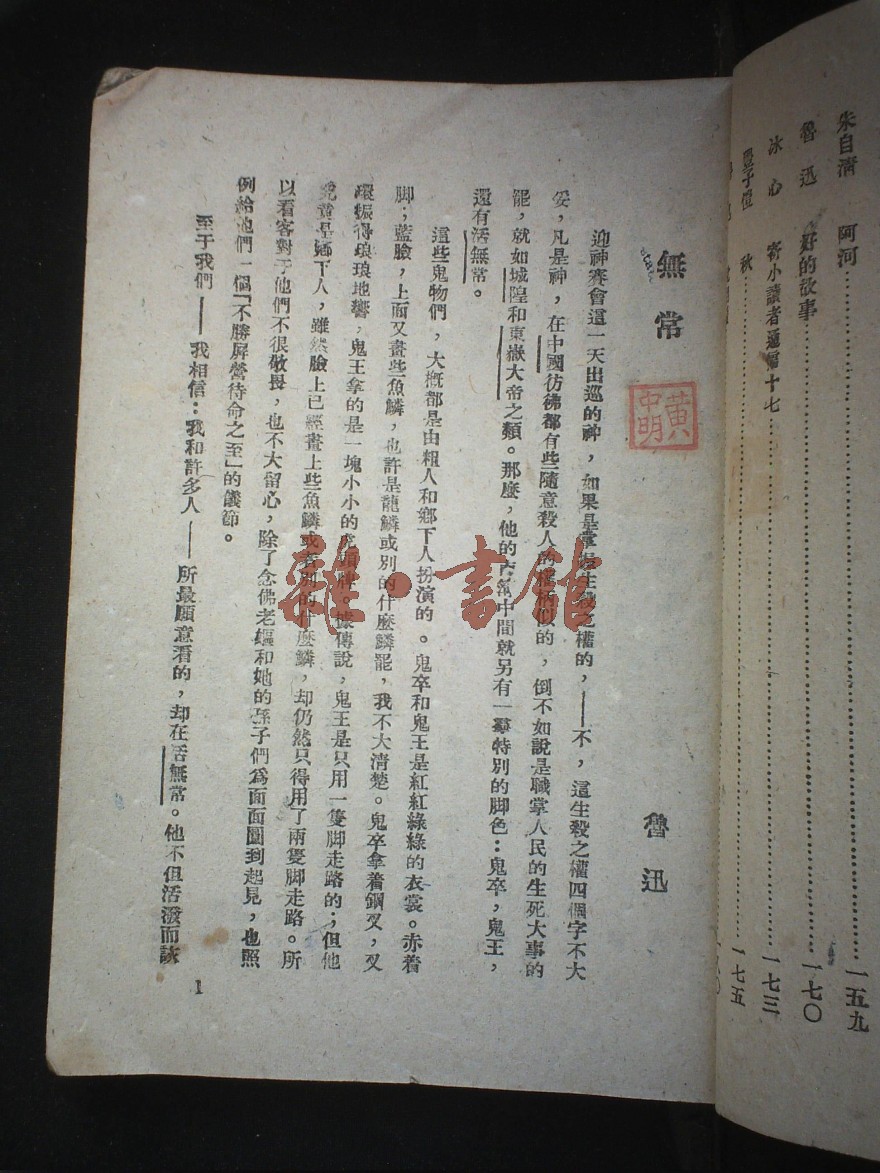 朱自清 阿河……一五九
魯迅 好的故事……一七〇
冰心 寄小讀者通信十七……一七三
豐子愷 秋……一七五
無常
魯迅
黃中明
迎神賽會這一天出巡的神，如果是掌握生殺之權的，——不，這生殺之權四個字不大
妥，凡是神，在中國彷彿都有些隨意殺人的權柄似的，倒不如說是職掌人民的生死大事的
罷，就如城隍和東嶽大帝之類。那麼，他的鹵簿中間就另有一羣特別的脚色：鬼卒，鬼王，
還有活無常。
這些鬼物們，大概都是由粗人和鄉下人扮演的。鬼卒和鬼王是紅紅綠綠的衣裳。赤着
脚；藍臉，上面又畫些魚鱗，也許是龍鱗或別的什麼鱗罷，我不大清楚。鬼卒拿着鋼叉，叉
環振得琅琅地響，鬼王拿的是一塊小小的虎頭牌。據傳說，鬼王是只用一隻脚走路的；但他
究竟是鄉下人，雖然臉上已經畫上些魚鱗或者別的什麼鱗，却仍然只得用了兩隻脚走路。所
以看客對于他們不很敬畏，也不大留心，除了念佛老嫗和她的孫子們爲面面圓到起見，也照
例給他們一個「不勝屏營待命之至」的儀節。
至于我們——我相信：我和許多人——所最願意看的，却在活無常。他不但活潑而詼
1
雜·書館